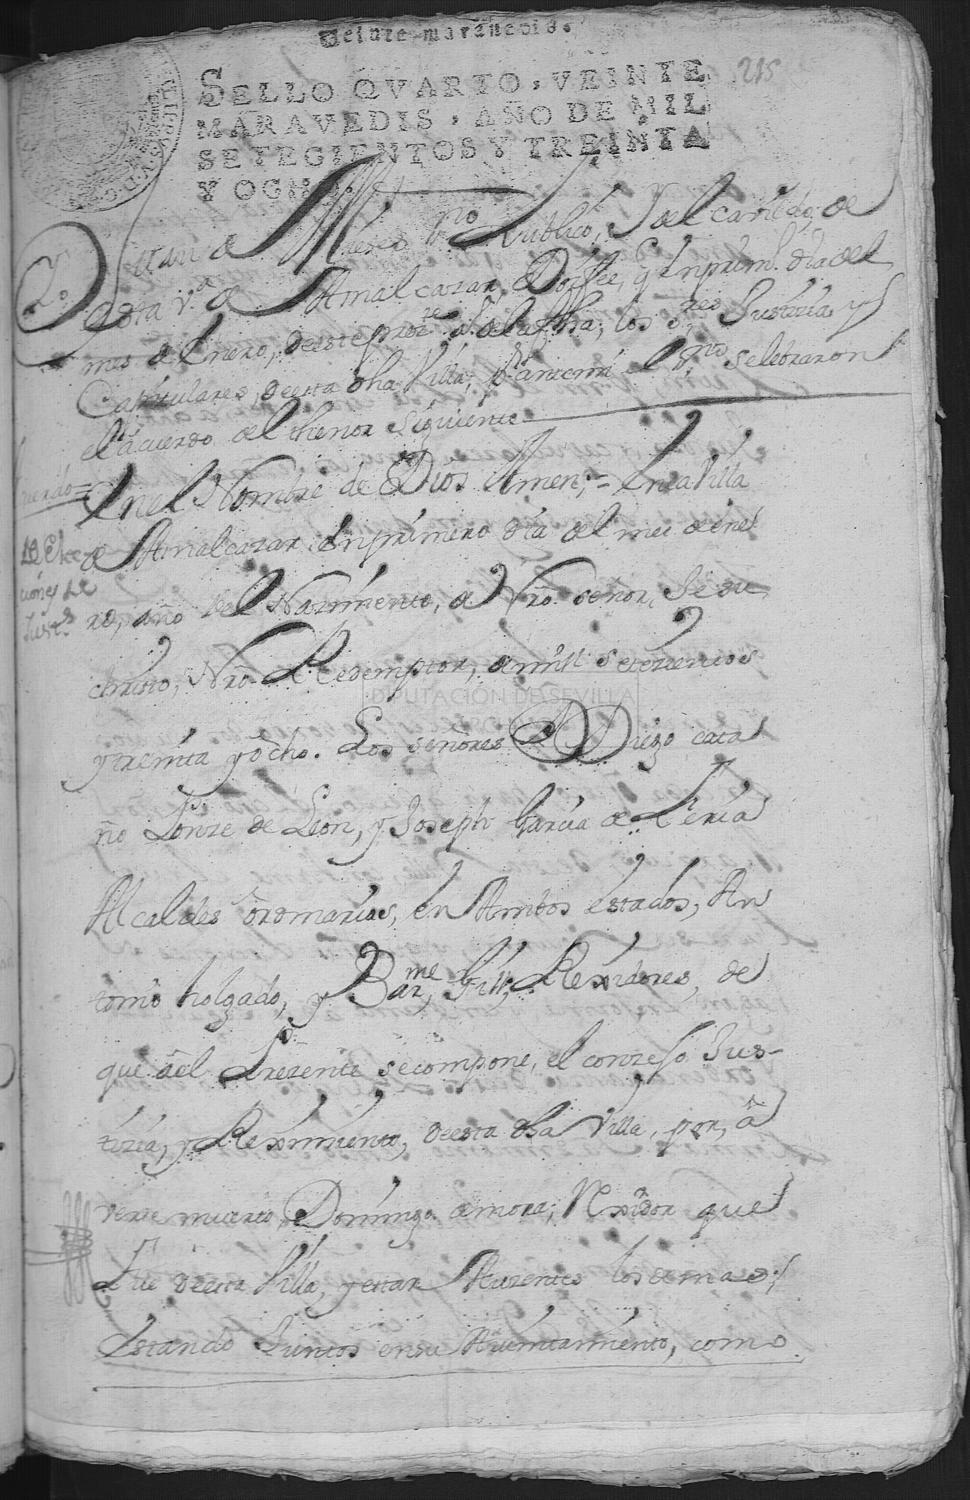 Veinte marauedis.
215
SELLO QVARTO, VEINTE
MARAVEDIS, AÑO DE MIL
SETECIENTOS Y TREINTA
Y OCHO.
Yo, Juan de ssno Publico, y del cavildo de
esta va de Almalcazar Doi fee, q en prim. dia del
mes de Enero, deeste preste. a. dela fha, los sres Justicia y
Capitulares, deesta dha Villa, Pr antemi el ssno selebraron
el acuerdo del thenor siguiente
En el Nombre de Dios Amen, = En la Villa
de Almalcazar, en primero dia del mes de ene
ro, año del Nazimiento, de Nro señor, Jesu
christo, Nro Redemptor, de mill setezientos
y treinta y ocho. Los señores Dn Diego cata
ño Ponze de Leon, y Joseph Garcia de Leria
Alcaldes ordinarios, en Ambos estados, An
tonio holgado, y Barme Gill, Rexidores, de
que âel Prezente secompone, el conzejo Jus-
tizia, y Reximiento, deesta dha Villa, por, â
verse muerto, Domingo demora, Rexidor que
Fue deesta Villa, y estar Auzentes los demas,
Estando Juntos ensu Aiuntamiento, como
DIPUTACIÓN DE SEVILLA